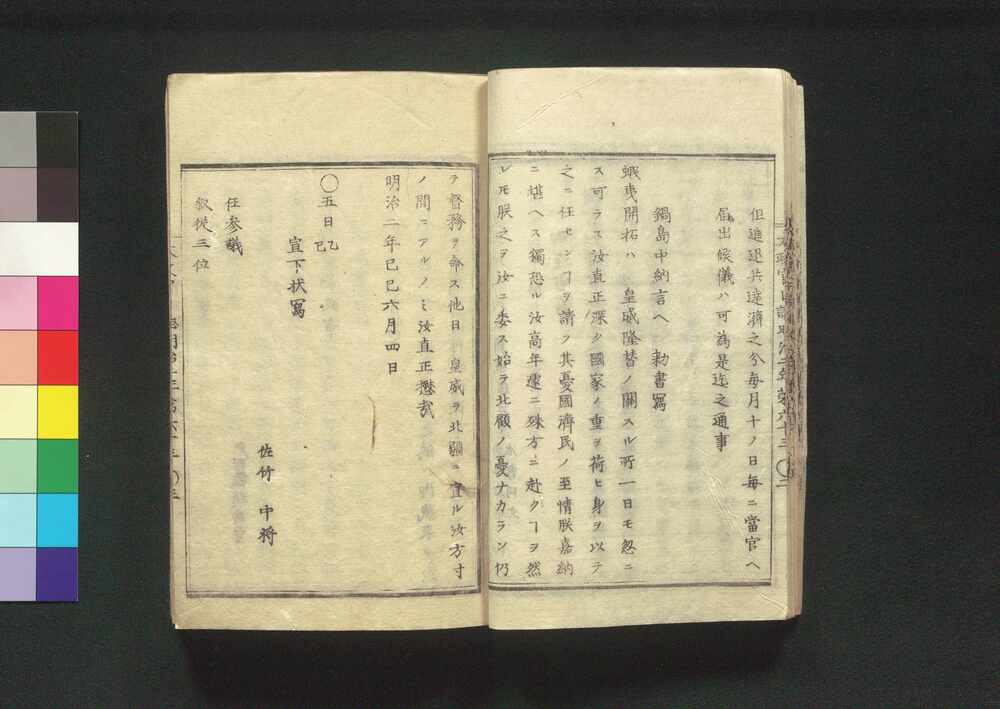 但進退共達濟之分毎月十ノ日毎ニ當官ヘ
届出候儀ハ可為是迄之通事
鍋島中納言ヘ 勅書寫
蝦夷開拓ハ 皇威隆替ノ關スル所一日モ忽ニ
ス可ラス汝直正深ク國家ノ重ヲ荷ヒ身ヲ以テ
之ニ任センヿヲ請フ其憂國濟民ノ至情朕嘉納
ニ堪ヘス獨恐ル汝高年遽ニ殊方ニ赴クヿヲ然
レモ朕之ヲ汝ニ委ス始テ北顧ノ憂ナカラン仍
テ督務ヲ命ス他日 皇威ヲ北疆ニ宣ル汝方寸
ノ間ニアルノミ汝直正懋哉
明治二年己巳六月四日
〇五日 乙巳
宣下状寫
佐竹 中將
任參議
叙從三位